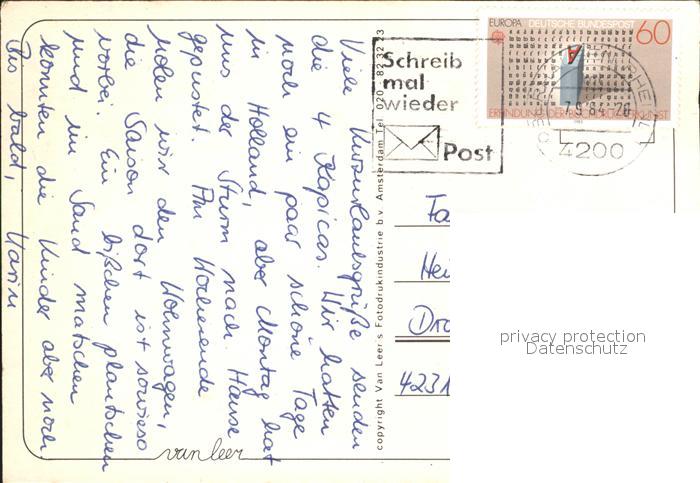 Viele Kurzurlaubsgrüße senden
die 4 Kapicas. Wir hatten
noch ein paar schöne Tage
in Holland, aber Montag hat
uns der Sturm nach Hause
gepustet. Am Wochenende
holen wir den Wohnwagen,
die Saison dort ist sowieso
vorbei. Ein bißchen plantschen
und im Sand matschen
konnten die Kinder aber noch.
Bis bald,
Karin
van leer
copyright Van Leer's Fotodrukindustrie b.v. Amsterdam Tel. 020 - 82 32 23
Schreib
mal
wieder
Post
EUROPA DEUTSCHE BUNDESPOST 60
7.9.84
4200
Fa
Hei
Dro
4231
privacy protection
Datenschutz